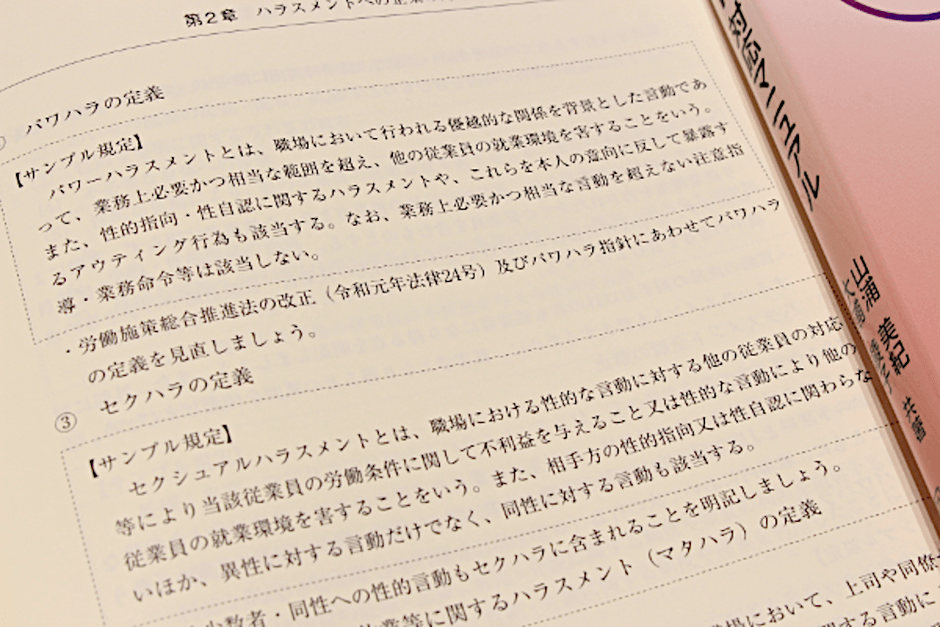 第2章 ハラスメントへの企業
パワハラの定義
【サンプル規定】
パワーハラスメントとは、職場において行われる優越的な関係を背景とした言動であ
って、業務上必要かつ相当な範囲を超え、他の従業員の就業環境を害することをいう。
また、性的指向・性自認に関するハラスメントや、これらを本人の意向に反して暴露す
るアウティング行為も該当する。なお、業務上必要かつ相当な言動を超えない注意指
導・業務命令等は該当しない。
・労働施策総合推進法の改正（令和元年法律24号）及びパワハラ指針にあわせてパワハラ
の定義を見直しましょう。
③ セクハラの定義
【サンプル規定】
セクシュアルハラスメントとは、職場における性的な言動に対する他の従業員の対応
等により当該従業員の労働条件に関して不利益を与えること又は性的な言動により他の
従業員の就業環境を害することをいう。また、相手方の性的指向又は性自認に関わらな
いほか、異性に対する言動だけでなく、同性に対する言動も該当する。
少数者・同性への性的言動もセクハラに含まれることを明記しましょう。
業等に関するハラスメント（マタハラ）の定義
職場において、上司や同僚
関する言動に
対応マニュアル
山浦 美紀
大浦 綾子 共著